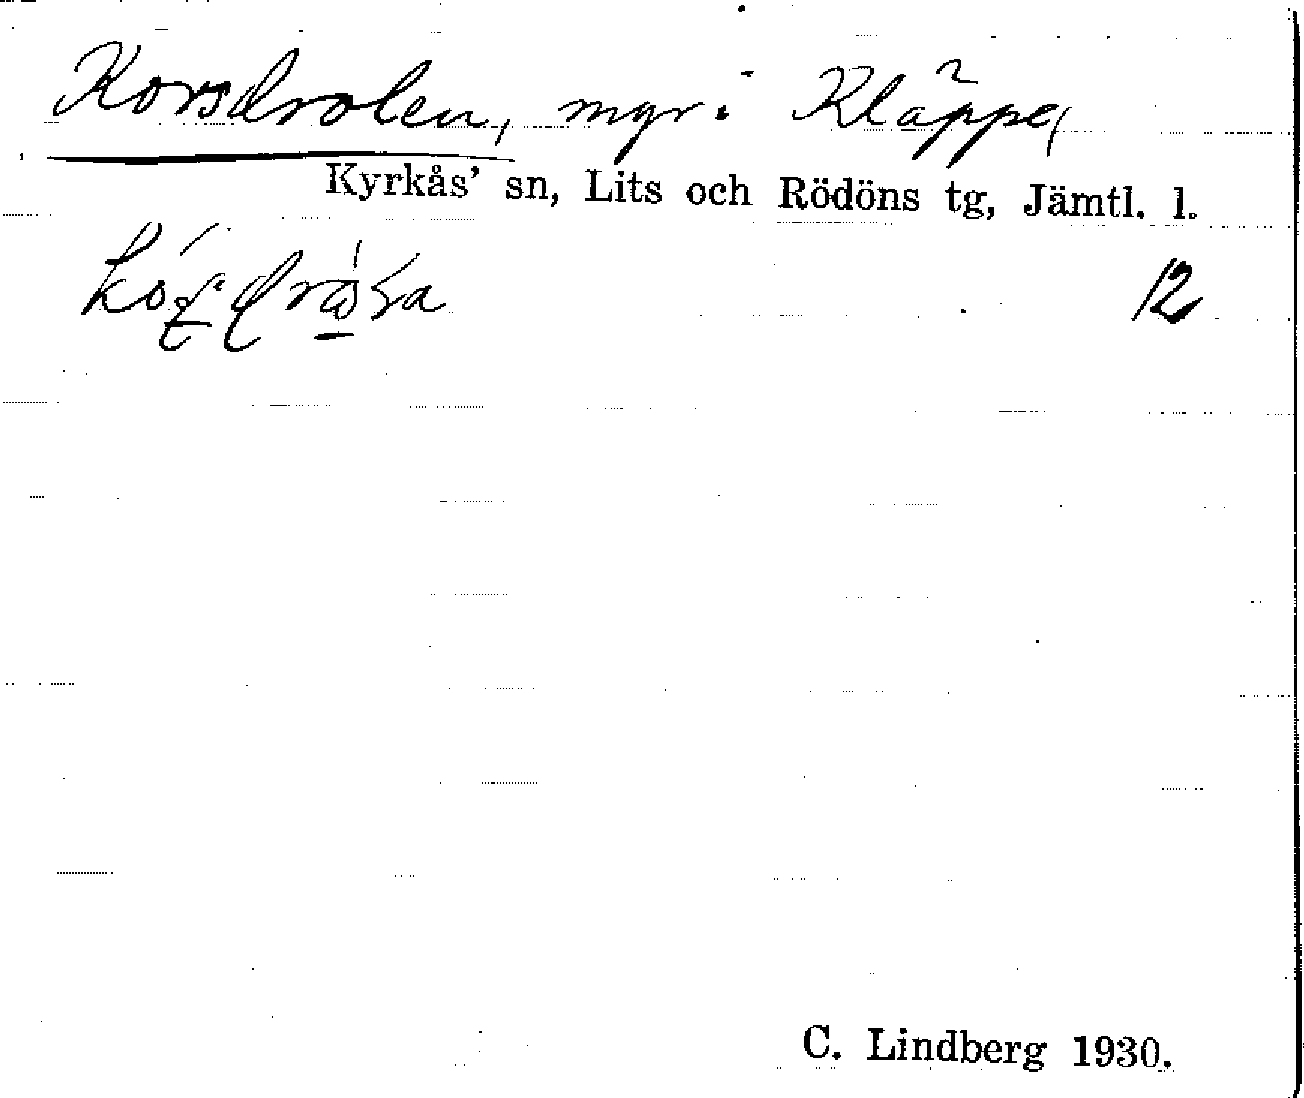 Korsdrolen, mgr i Kläppe,
Kyrkås' sn, Lits och Rödöns tg, Jämtl. l.
12
C. Lindberg 1930.